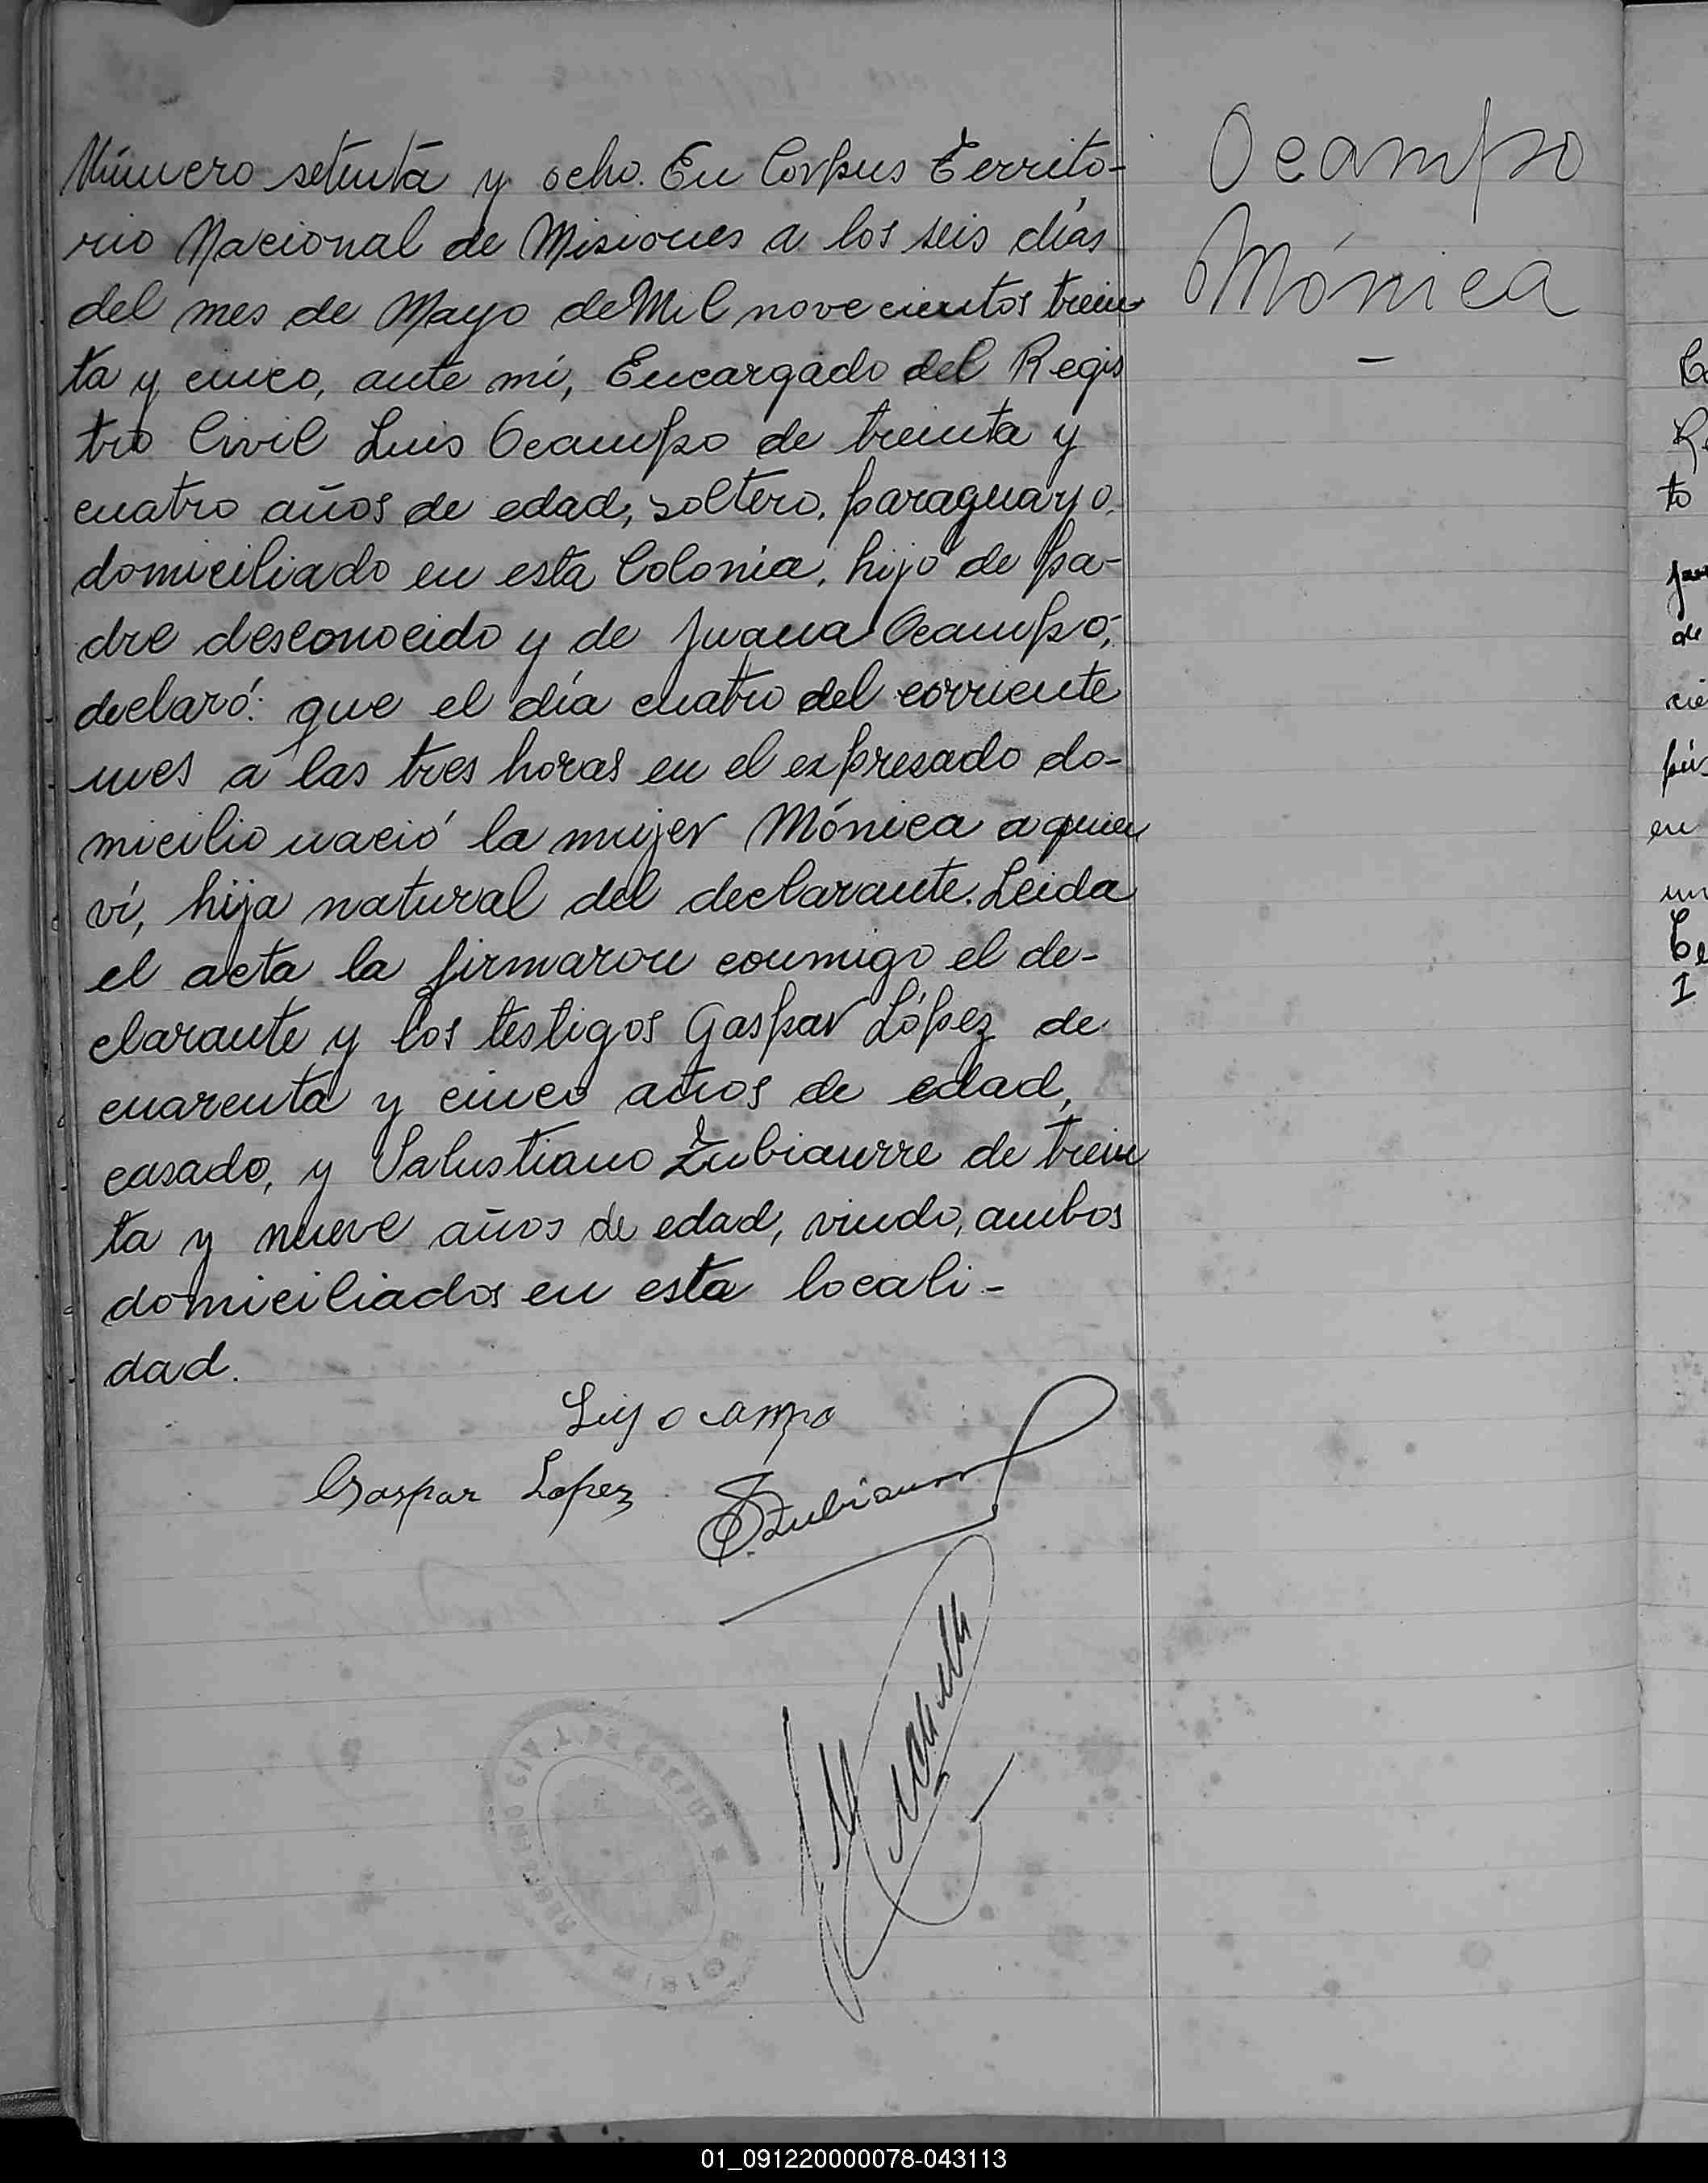 Número setenta y ocho. En Corpus Territo-
rio Nacional de Misiones a los seis días
del mes de Mayo de Mil novecientos trein
ta y cinco, ante mí, Encargado del Regis
tro Civil Luis Ocampo de treinta y
cuatro años de edad, soltero, paraguayo,
domiciliado en esta Colonia, hijo de pa-
dre desconocido y de Juana Ocampo,
declaró: que el día cuatro del corriente
mes a las tres horas en el expresado do-
micilio nació la mujer Mónica a quien
ví, hija natural del declarante. Leida
el acta la firmaron conmigo el de-
clarante y los testigos Gaspar López de
cuarenta y cinco años de edad,
casado, y Salustiano Zubiaurre de trein
ta y nueve años de edad, viudo, ambos
domiciliados en esta locali-
dad.
Ocampo
Mónica
-
Luis ocampo
Gaspar Lopez
S. Zubiaurre
REGISTRO CIVIL DE CORPUS
01_091220000078-043113